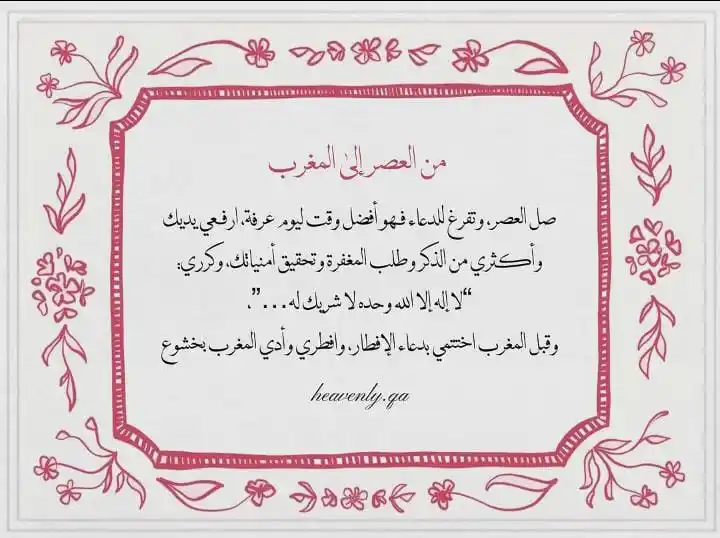 من العصر إلىٰ المغرب
صل العصر، وتفرغ للدعاء فهو أفضل وقت ليوم عرفة، ارفعي يديك
وأكثري من الذكر وطلب المغفرة وتحقيق أمنياتك، وكرري:
“لا إله إلا الله وحده لا شريك له...”،
وقبل المغرب اختتمي بدعاء الإفطار، وافطري وأدي المغرب بخشوع
heavenly.qa